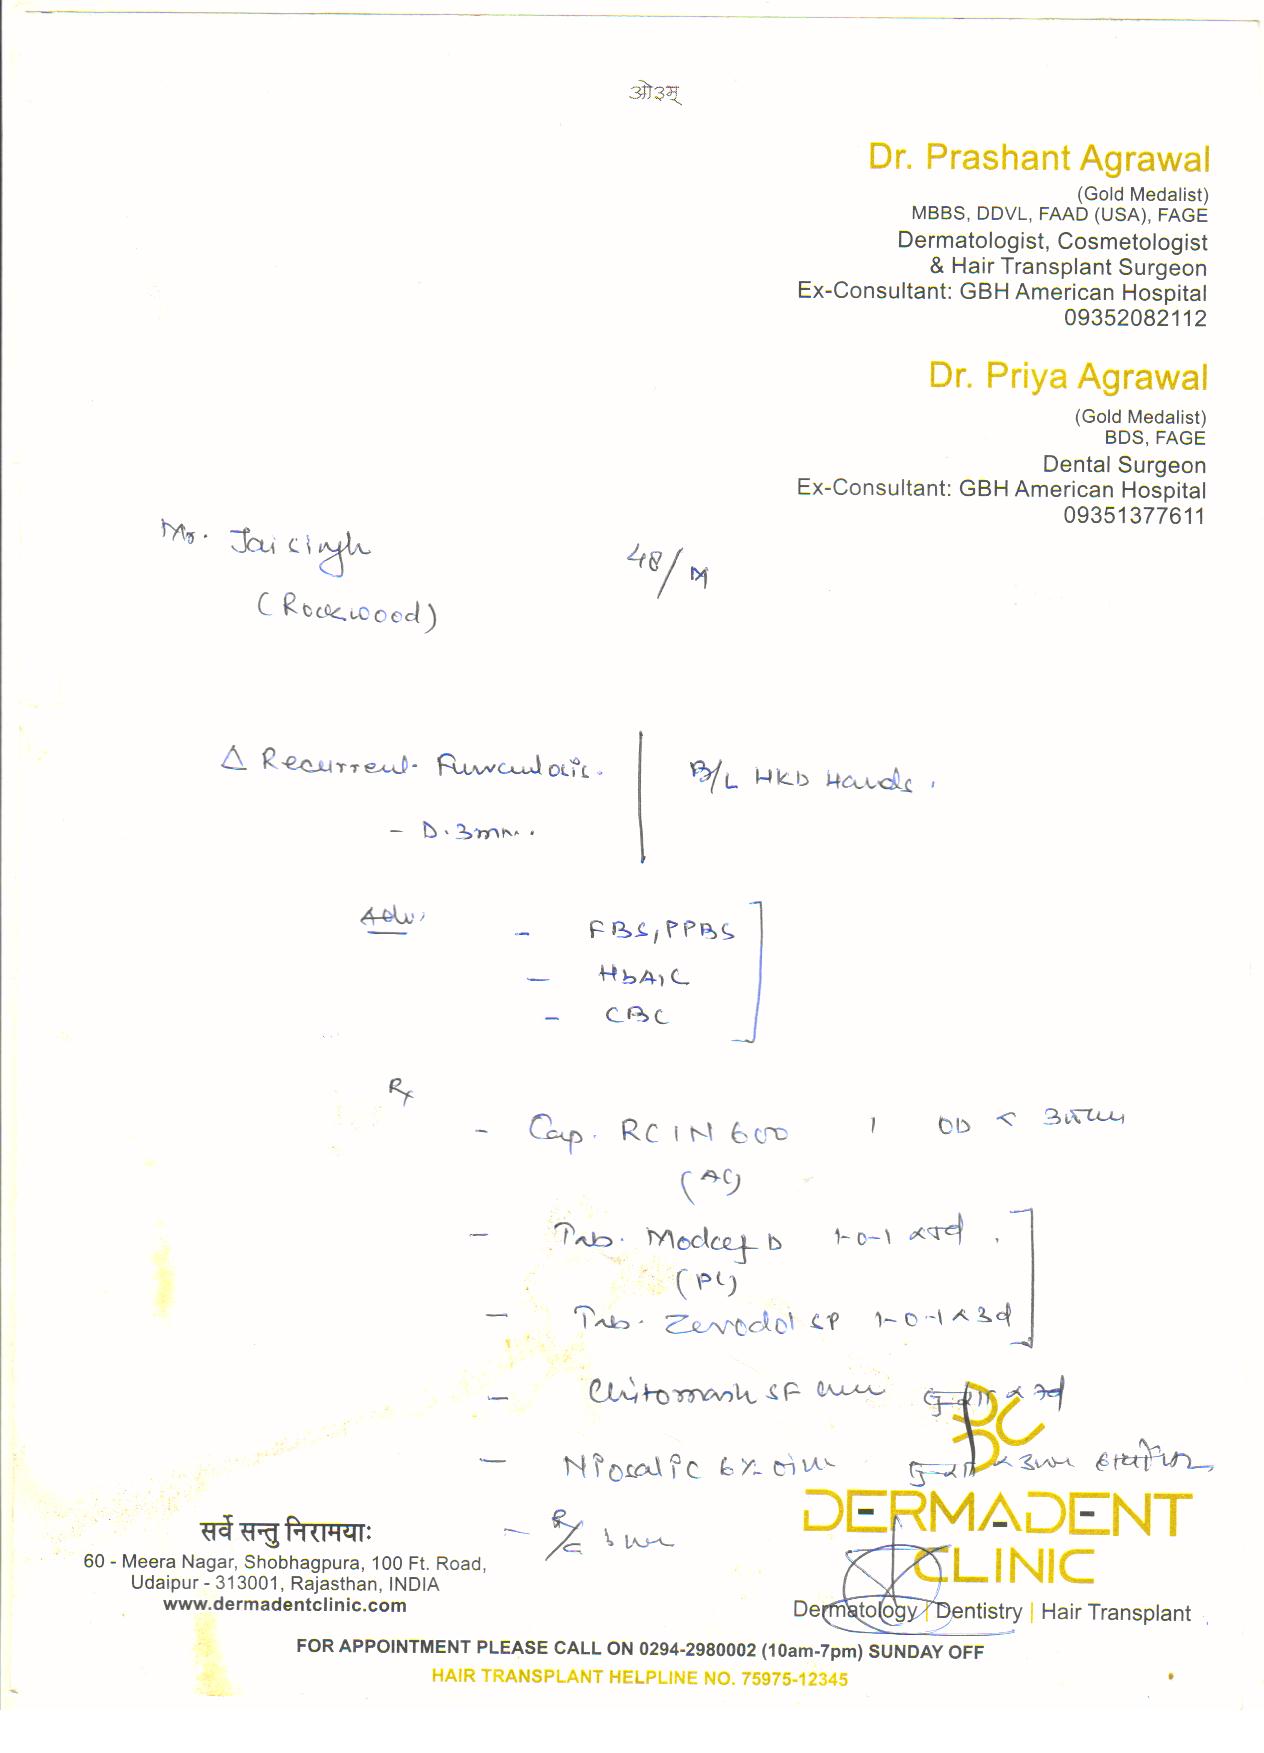 ओ३म्
Dr. Prashant Agrawal
(Gold Medalist)
MBBS, DDVL, FAAD (USA), FAGE
Dermatologist, Cosmetologist
& Hair Transplant Surgeon
Ex-Consultant: GBH American Hospital
09352082112
Dr. Priya Agrawal
(Gold Medalist)
BDS, FAGE
Dental Surgeon
Ex-Consultant: GBH American Hospital
09351377611
Mr. Jaisingh 48/M
(Rockwood)
Δ Recurrent Furunculosis.
B/L HKD Hands.
- D. 3mm.
Adv.
- FBS, PPBS
- HbA1C
- CBC
Rx
- Cap. RCIN 600 1 OD
(AC)
- Tab. Modcef D 1-0-1
(PC)
- Tab. Zerodol SP 1-0-1 x 3d
DERMADENT
CLINIC
Dermatology | Dentistry | Hair Transplant
सर्वे सन्तु निरामयाः
60 - Meera Nagar, Shobhagpura, 100 Ft. Road,
Udaipur - 313001, Rajasthan, INDIA
www.dermadentclinic.com
FOR APPOINTMENT PLEASE CALL ON 0294-2980002 (10am-7pm) SUNDAY OFF
HAIR TRANSPLANT HELPLINE NO. 75975-12345